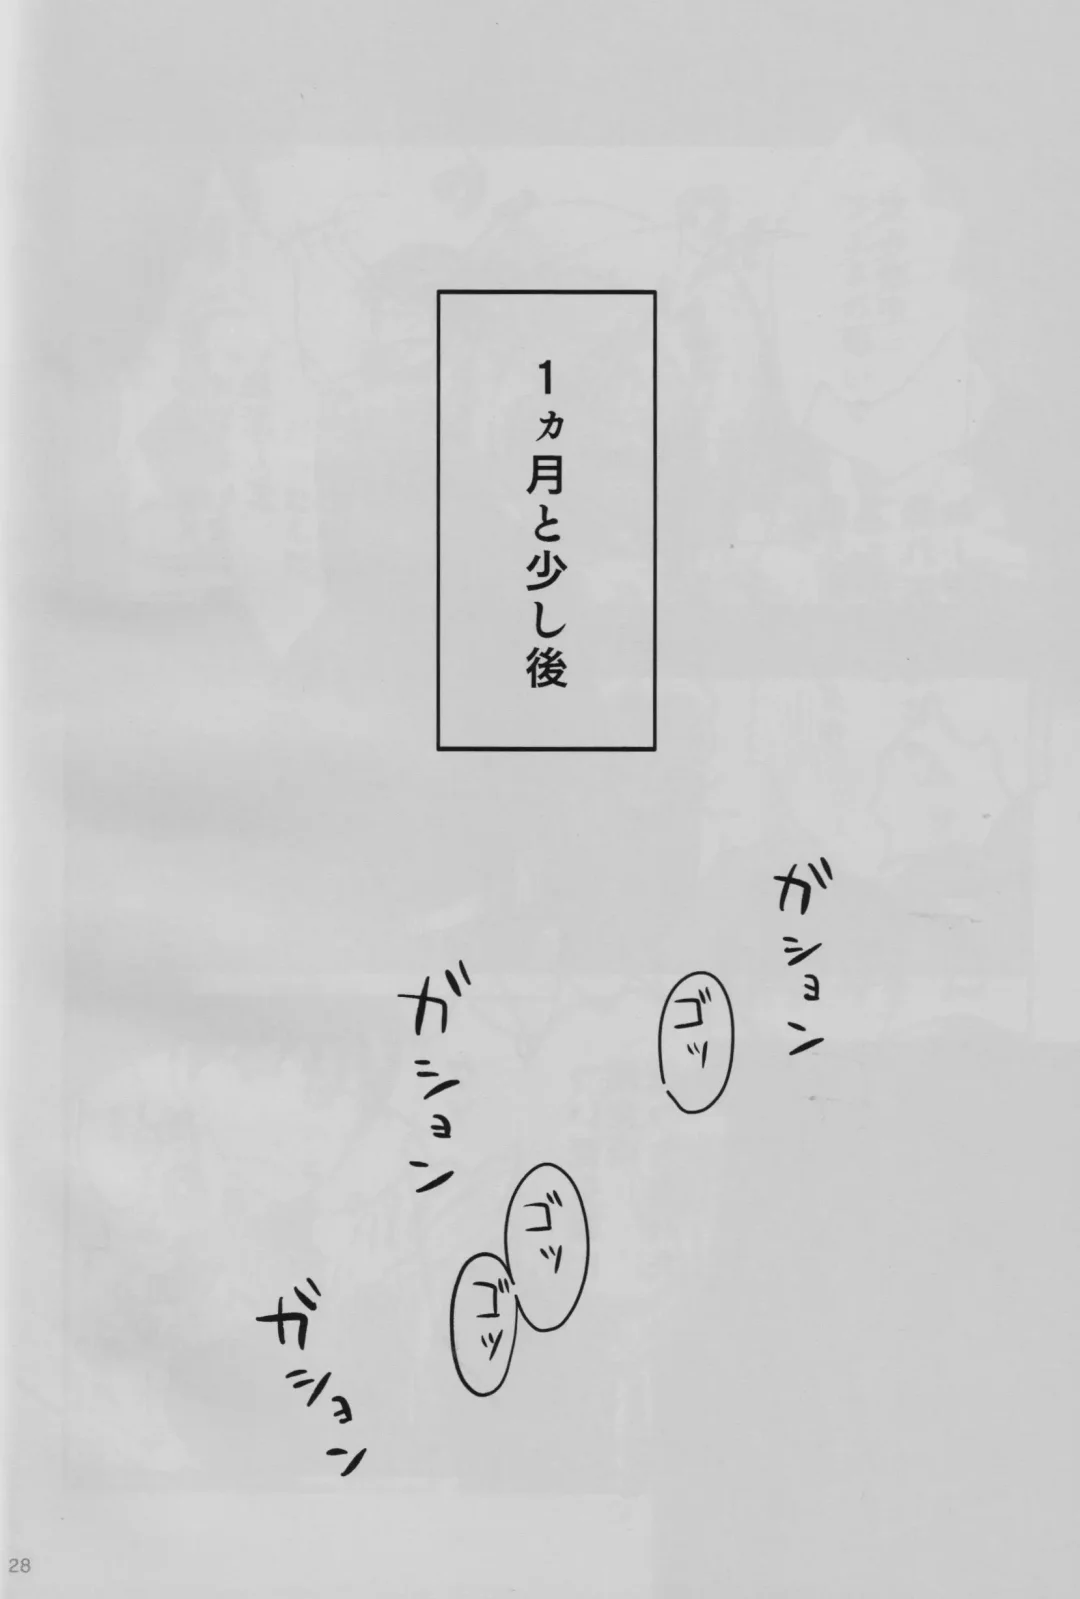 1ヵ月と少し後
ガション
ゴッ
ガション
ゴッ
ゴッ
ガション
28